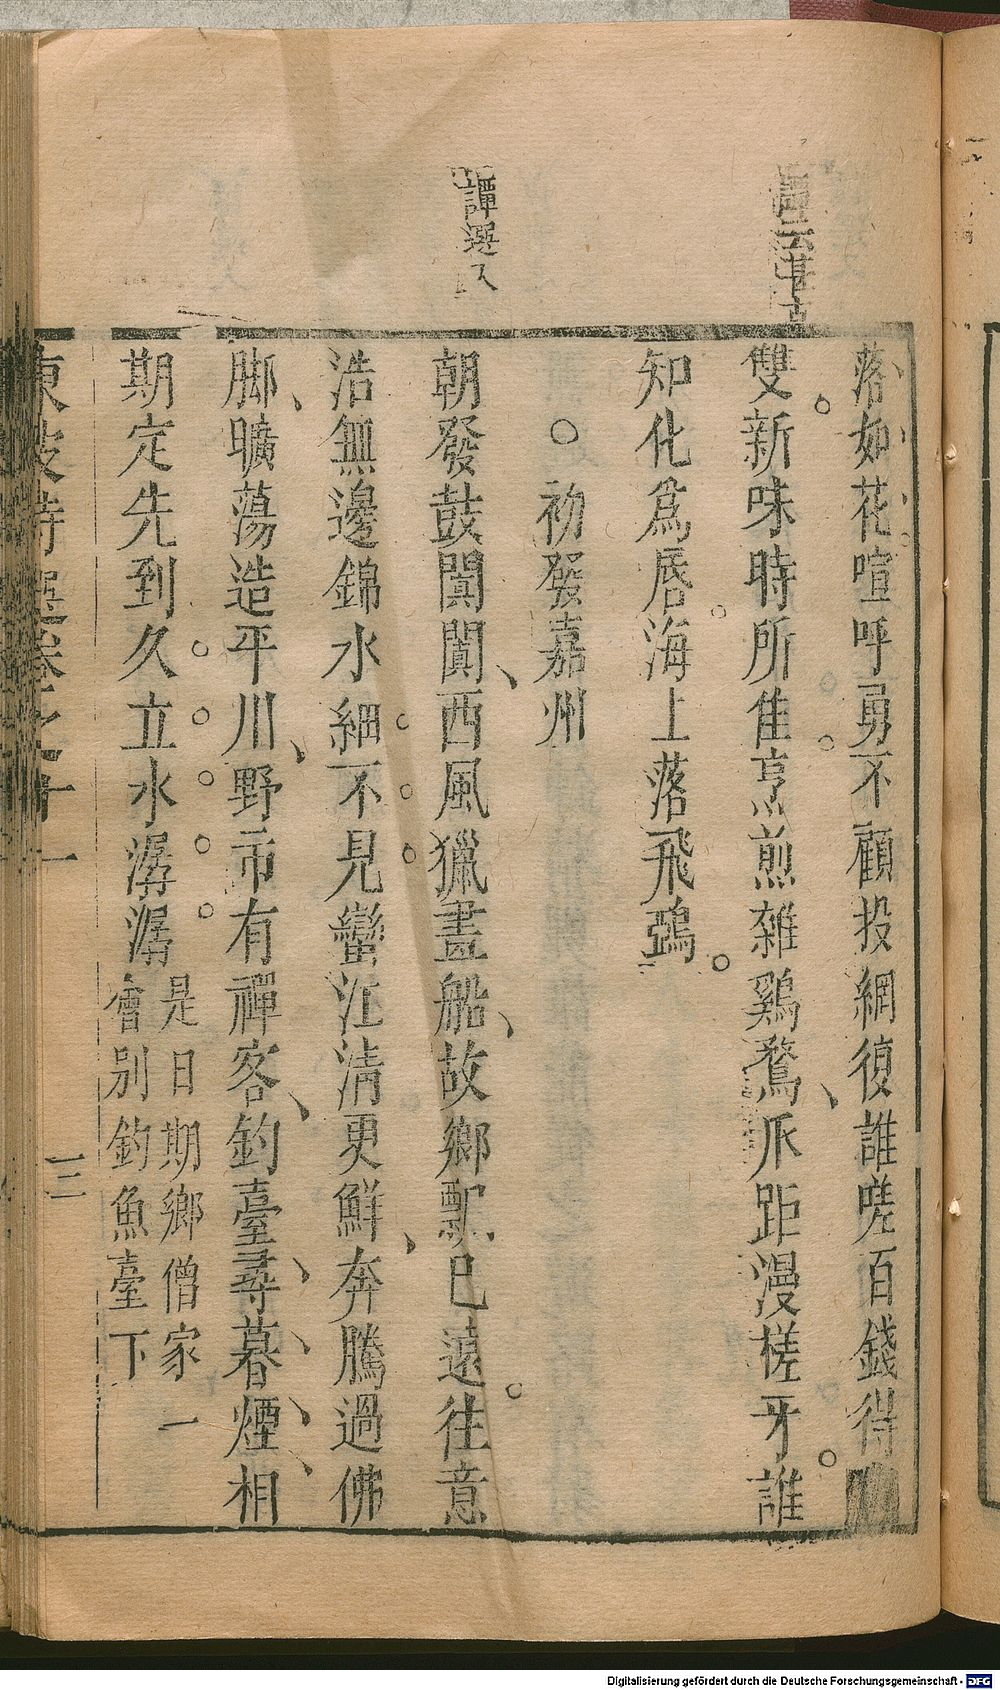 譚云甚古
落如花喧呼勇不顧投網復誰嗟百錢得
雙新味時所隹烹煎雜鷄鶩爪距漫槎牙誰
知化爲唇海上落飛鴉
○初發嘉州
譚選入
朝發鼓闐闐西風獵畫船故鄉飄已遠往意
浩無邊錦水細不見蠻江清更鮮奔騰過佛
脚曠蕩造平川野市有禪客釣臺尋暮煙相
期定先到久立水潺潺
是日期鄉僧家一
會別釣魚臺下
東坡詩選卷之十一
三
Digitalisierung gefördert durch die Deutsche Forschungsgemeinschaft - DFG